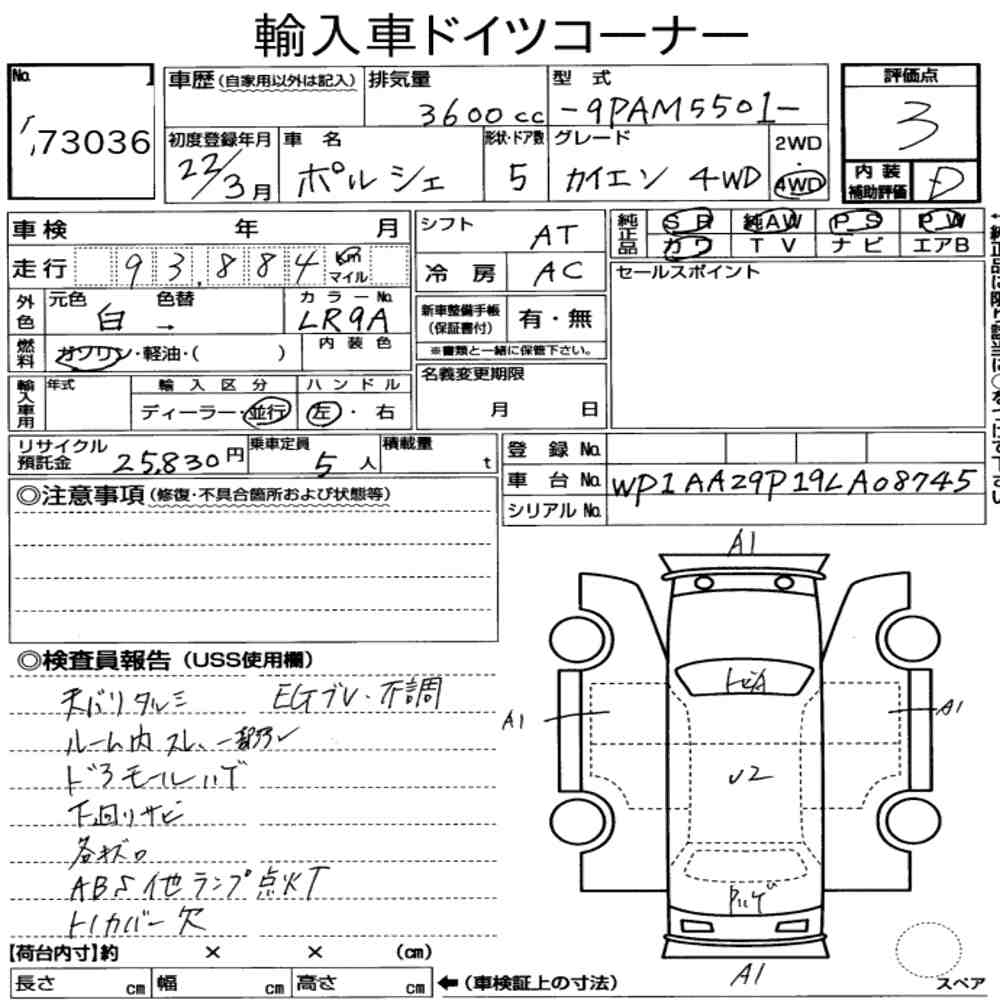 輸入車ドイツコーナー
No.
73036
車歴(自家用以外は記入) 排気量 3600cc 型式 -9PAM5501-
初度登録年月 22/3月 車名 ポルシェ 形状・ドア数 5 グレード カイエン 4WD 2WD・4WD
評価点 3
内装補助評価 D
車検 年 月
走行 93,884 Km マイル
外色 元色 白 色替 → カラーNo. LR9A
燃料 ガソリン・軽油・( ) 内装色
輸入車用 年式 輸入区分 ディーラー・並行 ハンドル 左・右
リサイクル預託金 25,830円 乗車定員 5人 積載量 t
シフト AT
冷房 AC
新車整備手帳(保証書付) 有・無
※書類と一緒に保管下さい。
名義変更期限 月 日
純正品 SR 純AW PS PW
カワ TV ナビ エアB
セールスポイント
登録No.
車台No. WP1AA29P19LA08745
シリアルNo.
◎注意事項(修復・不具合箇所および状態等)
◎検査員報告(USS使用欄)
天バリタルミ EGブレ・不調
ルーム内スレ、
ドアモールハゲ
下回りサビ
各キズ
ABS他ランプ点灯
トノカバー欠
A1
トビA
A1
A1
U2
A1
スペア
【荷台内寸】約 × × (cm)
長さ cm 幅 cm 高さ cm ←(車検証上の寸法)